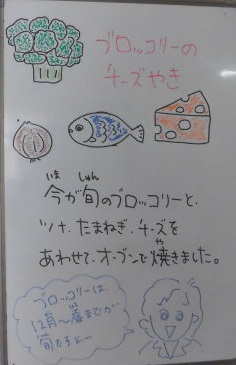 ブロッコリーの
チーズやき
いま しゅん
今が旬のブロッコリーと、
ツナ、たまねぎ、チーズを
や
あわせて、オーブンで焼きました。
ブロッコリーは、
12月～春までが
旬だよー